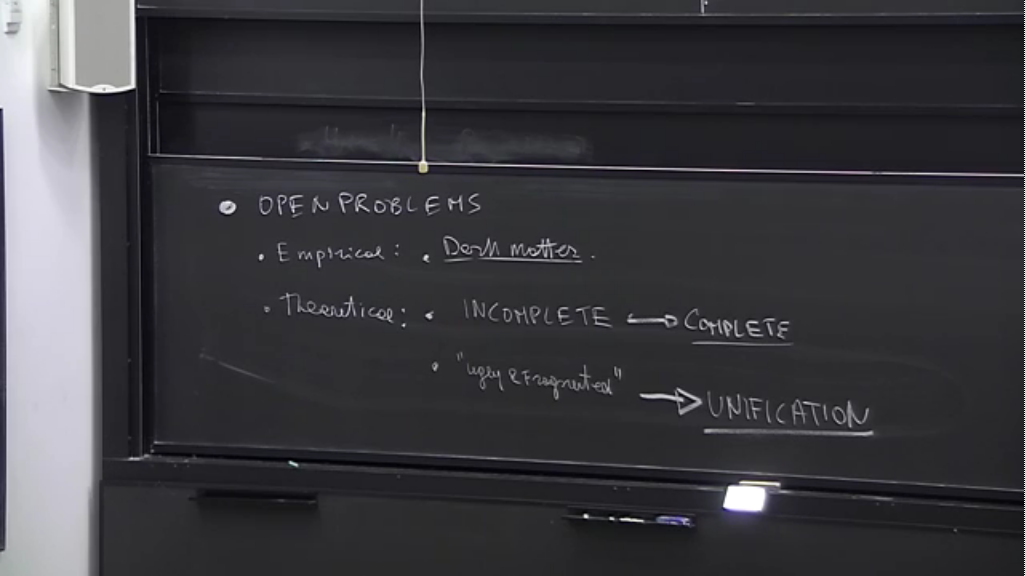 OPEN PROBLEMS
• Empirical: • Dark matter.
• Theoretical: • INCOMPLETE → COMPLETE
• "ugly & Fragmented" → UNIFICATION